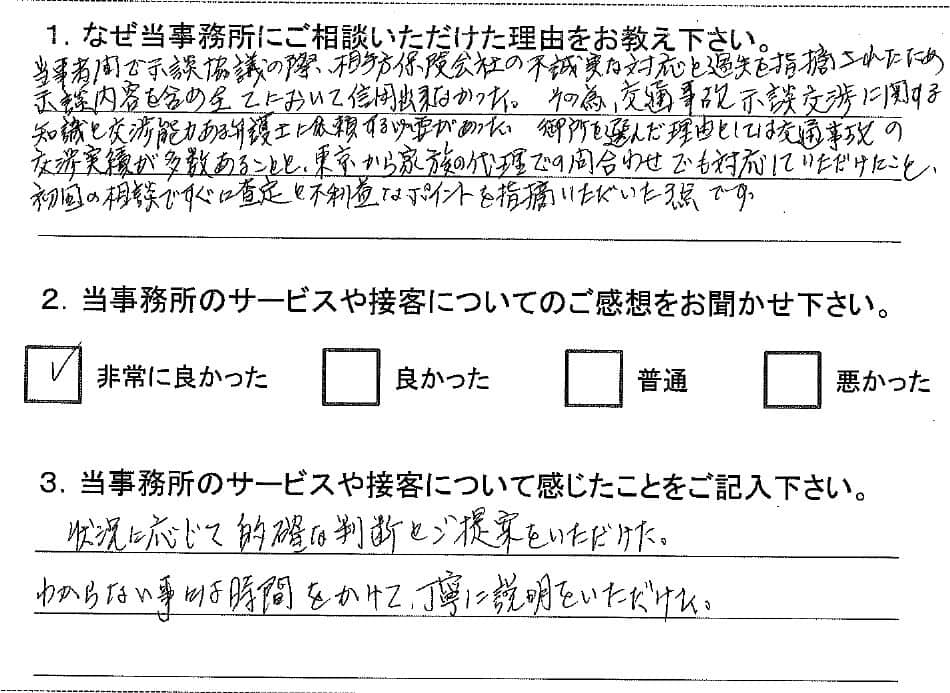 1. なぜ当事務所にご相談いただけた理由をお教え下さい。
当事者間で示談協議の際、相手方保険会社の不誠実な対応と過失を指摘されたため
示談内容を含め全てにおいて信用出来なかった。 その為、交通事故示談交渉に関する
知識と交渉能力ある弁護士に依頼する必要があった。 御所を選んだ理由としては交通事故の
交渉実績が多数あることと、東京から家族の代理での問合わせでも対応していただけたこと、
初回の相談ですぐに査定と不利益なポイントを指摘いただいた点です。
2. 当事務所のサービスや接客についてのご感想をお聞かせ下さい。
非常に良かった 良かった 普通 悪かった
3. 当事務所のサービスや接客について感じたことをご記入下さい。
状況に応じて的確な判断とご提案をいただけた。
わからない事は時間をかけて、丁寧に説明をいただけた。